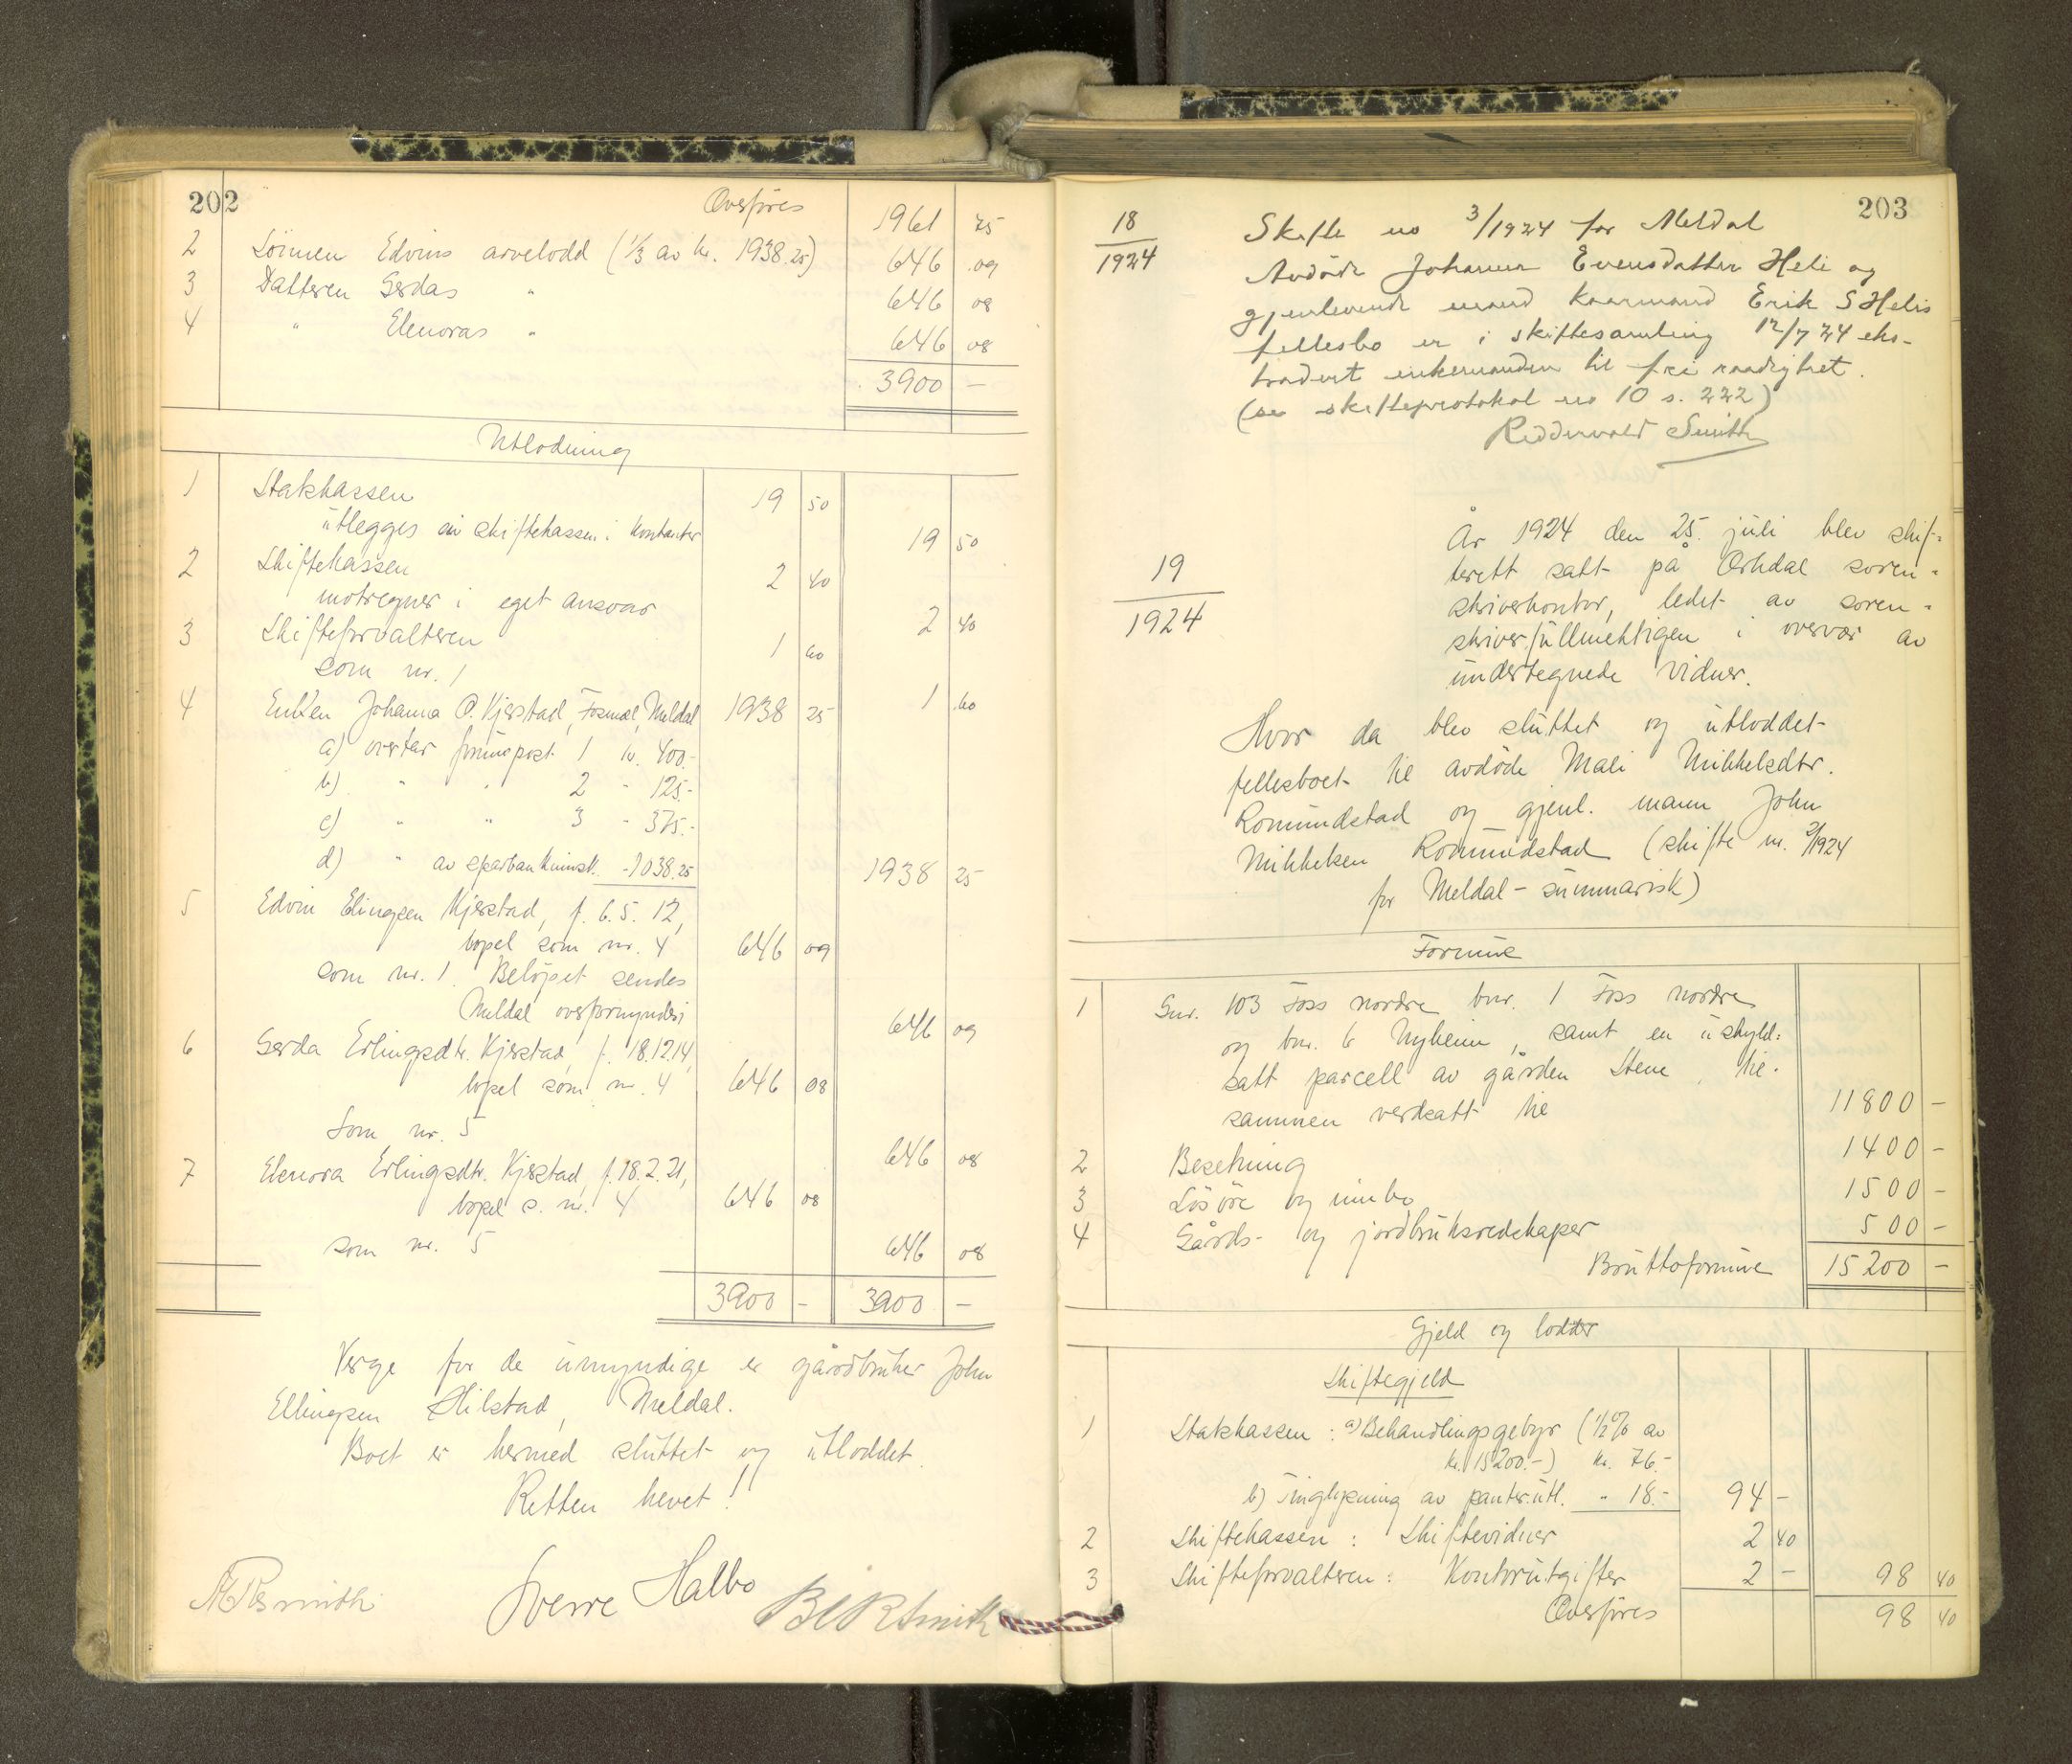 202
Overføres 1961 75
2 Sönnen Edvins arvelodd (1/3 av kr. 1938.25) 646 09
3 Datteren Gerdas " 646 08
4 " Elenoras " 646 08
3900 -
Utlodning
1 Statskassen 19 50
utlegges av skiftekassen i kontanter 19 50
2 Skiftekassen 2 40
motregner i eget ansvar 2 40
3 Skifteforvalteren 1 60
som nr. 1 1 60
4 Enken Johanna O. Kjerstad, Fosmæl, Meldal 1938 25
a) overtar formuepost 1 kr. 400.-
b) " " 2 " 125.-
c) " " 3 " 375.-
d) " av sparbankinnsk. - 1038.25 1938 25
5 Edvin Elingsen Kjerstad, f. 6.5.12,
bopel som nr. 4 646 09
som nr. 1. Belöpet sendes
Meldal overformynderi 646 09
6 Gerda Erlingsdtr. Kjerstad, f. 18.12.14,
bopel som nr. 4 646 08
Som nr. 5 646 08
7 Elenora Erlingsdtr. Kjerstad, f. 18.2.21,
bopel s. nr. 4 646 08
som nr. 5 646 08
3900 - 3900 -
Verge for de umyndige er gårdbruker John
Ellingsen Hilstad, Meldal.
Boet er hermed sluttet og utloddet.
Retten hevet!
Sverre Halbo
203
18
1924
Skifte no 3/1924 for Meldal
Avdöde Johanna Evensdatter Heli og
gjenlevende mand kaarmand Erik S Helis
fellesbo er i skiftesamling 12/7 24 eks-
tradert enkemanden til fri raadighet.
(se skifteprotokol no 10 s. 222)
Reddervold Smith
19
1924
År 1924 den 25. juli blev skif-
terett satt på Orkdal soren-
skriverkontor, ledet av soren-
skriverfullmektigen i overvær av
undertegnede vidner.
Hvor da blev sluttet og utloddet
fellesboet til avdöde Mali Mikkelsdtr.
Romundstad og gjenl. mann John
Mikkelsen Romundstad (skifte nr. 2/1924
for Meldal - summarisk)
Formue
1 Gnr. 103 Foss nordre bnr. 1 Foss nordre
og bnr. 6 Nyheim, samt en uskyld-
satt parcell av gården Stene, til-
sammen verdsatt til 11800 -
2 Besetning 1400 -
3 Lösöre og innbo 1500 -
4 Gårds- og jordbruksredskaper 500 -
Bruttoformue 15200 -
Gjeld og lodder
Skiftegjeld
1 Statskassen: a) Behandlingsgebyr (1/2% av
kr. 15200.-) kr. 76.-
b) Tinglysning av panter.utl. " 18.- 94 -
2 Skiftekassen: Skiftevidner 2 40
3 Skifteforvalteren: Kontorutgifter 2 - 98 40
Overføres 98 40